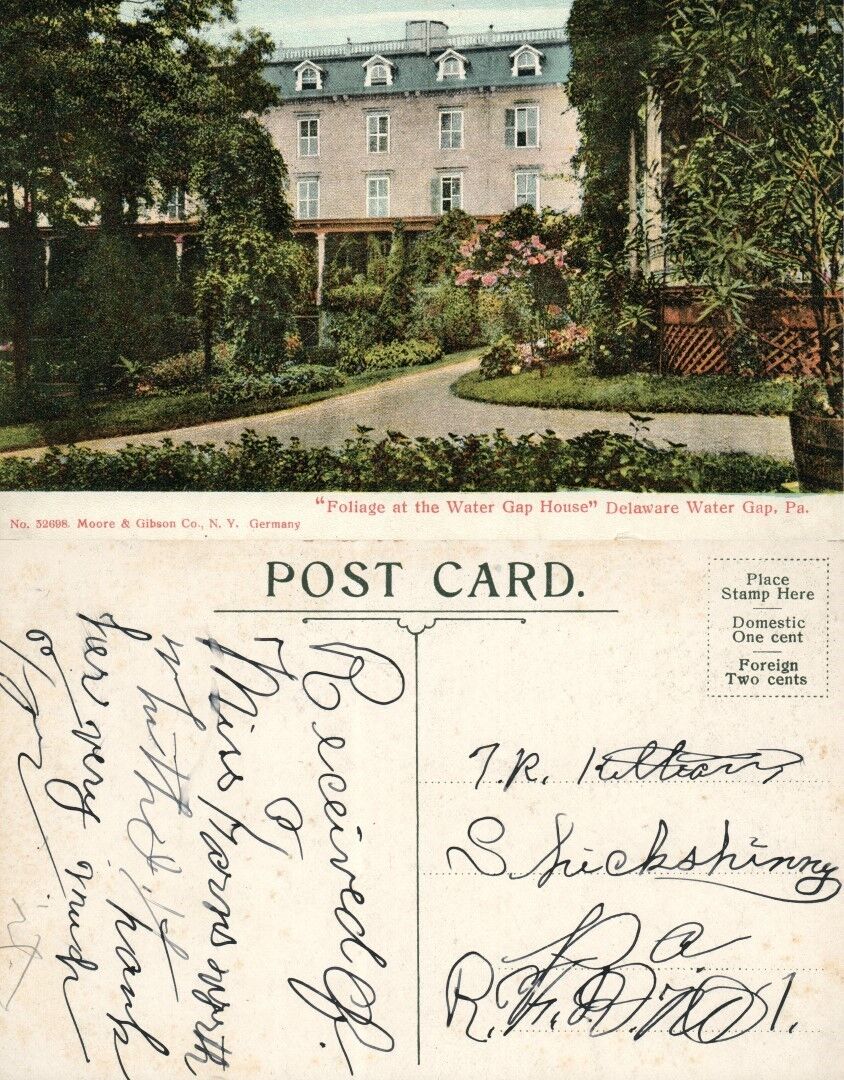 "Foliage at the Water Gap House" Delaware Water Gap, Pa.
No. 32698. Moore & Gibson Co., N. Y. Germany
POST CARD.
Place
Stamp Here
Domestic
One cent
Foreign
Two cents
Received of
Miss Farnsworth
thank
her very much
for it
T. R.
Shickshinny
Pa
R. F. D. No 1.